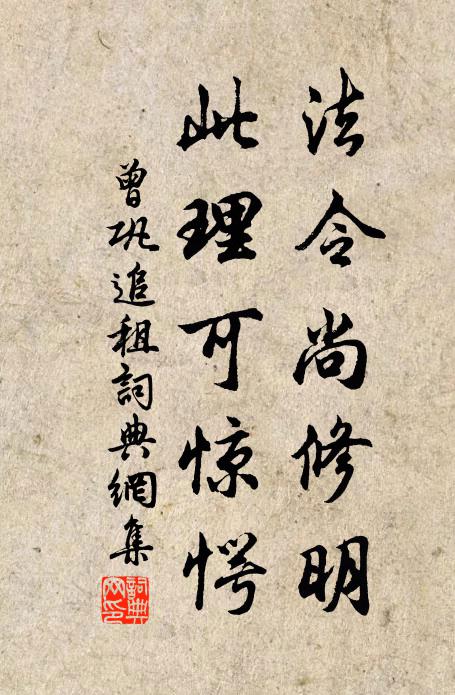 法令尚修明
此理可惊愕
曾巩追租詞典網集
詞典網印